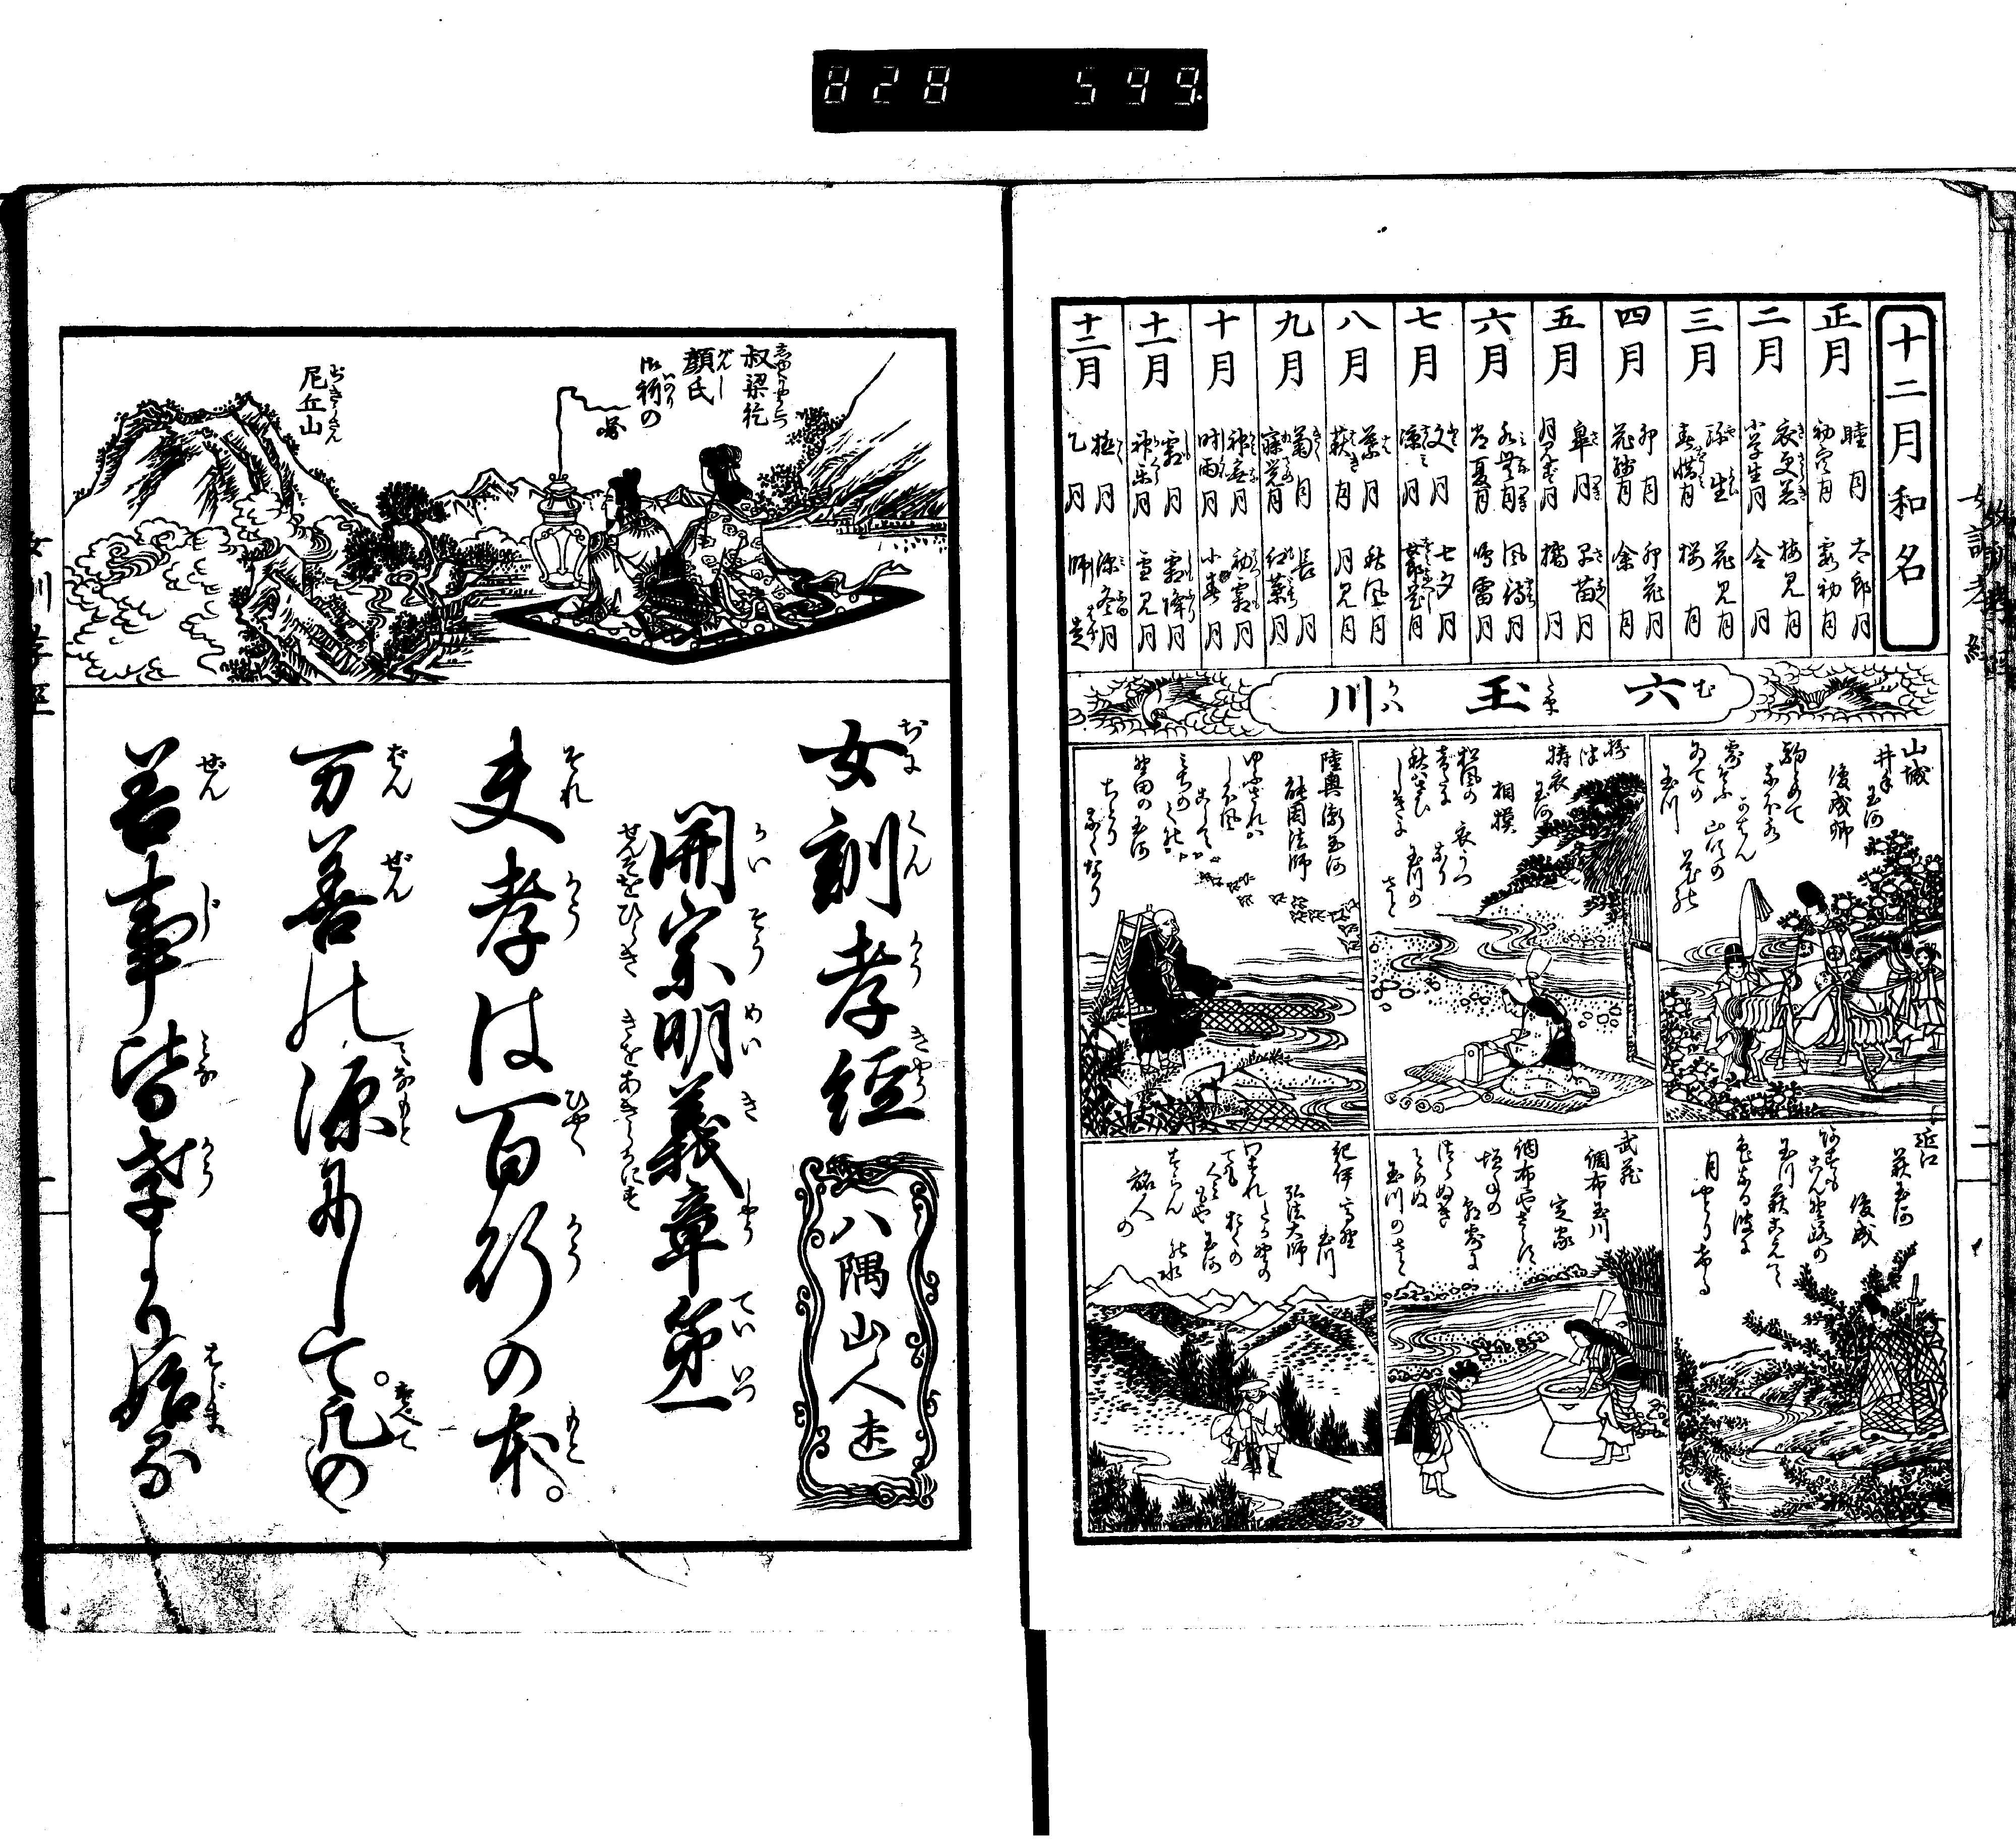 828 599
十二月和名
正月 睦月 太郎月
初空月 霞初月
二月 衣更着 梅見月
小草生月 令月
三月 弥生 花見月
春惜月 桜月
四月 卯月 卯花月
花残月 余月
五月 皐月 早苗月
月不見月 橘月
六月 水無月 風待月
常夏月 鳴雷月
七月 文月 七夕月
涼月 女郎花月
八月 葉月 秋風月
萩月 月見月
九月 菊月 長月
寐覚月 紅葉月
十月 神無月 初霜月
時雨月 小春月
十一月 霜月 霜降月
神楽月 雪見月
十二月 極月
乙月 師走
六玉川
山城
井手玉河
俊成卿
駒とめて
なほ水
かはん
山吹の
花の
露そふ
ゐての
玉川
擣衣玉河
相模
松風の
衣うつ
なり
玉川の
さと
陸奥
能因法師
ゆふされは
しほ風
こして
みちのくの
野田の玉河
ちとり
なくなり
近江
萩玉河
俊成
玉川
萩こえて
色なる波に
月やとりけり
武蔵
調布玉川
定家
調布や
さらす
垣ねの
朝露を
つらぬき
とめぬ
玉川のさと
紀伊
高野
玉川
弘法大師
わすれても
くみやしつらん
旅人の
女訓孝経
叔梁紇
顔氏
御祈の
尼丘山
女訓孝経
八隅山人述
開宗明義章第一
夫孝は百行の本。
万善の源にして。凡の
善事皆孝より始る